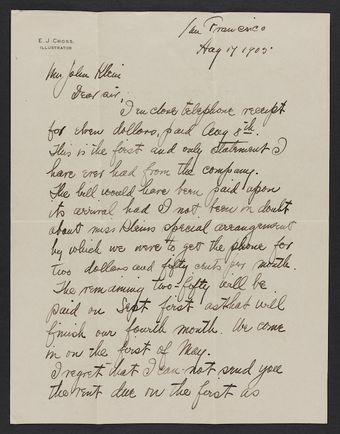 E. J. CROSS.
ILLUSTRATOR
San Francisco
Aug 17 1905
Mr John Klein
Dear sir,
I inclose telephone receipt
for seven dollars, paid Aug 8th.
This is the first and only statement I
have ever had from the company.
The bill would have been paid upon
its arrival had I not been in doubt
about miss Kleins special arrangement
by which we were to get the phone for
two dollars and fifty cents per month.
The remaining two-fifty will be
paid on Sept first as that will
finish our fourth month. We came
in on the first of May.
I regret that I can not send you
the rent due on the first as